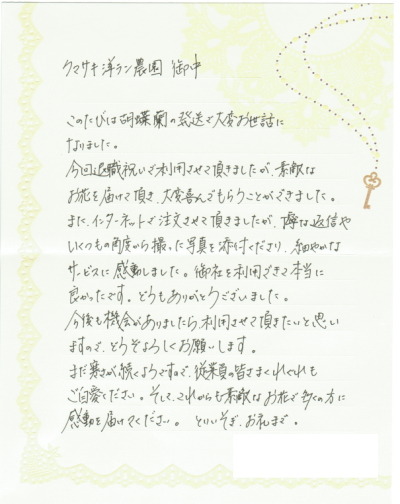 クマサキ洋ラン農園 御中
このたびは胡蝶蘭の発送で大変お世話に
なりました。
今回退職祝いで利用させて頂きましたが、素敵な
お花を届けて頂き、大変喜んでもらうことができました。
また、インターネットで注文させて頂きましたが、丁寧な返信や
いくつもの角度から撮った写真を添付くださり、細やかな
サービスに感動しました。御社を利用できて本当に
良かったです。どうもありがとうございました。
今後も機会がありましたら利用させて頂きたいと思い
ますので、どうぞよろしくお願いします。
まだ寒さが続くようですので、従業員の皆さまくれぐれも
ご自愛ください。そして、これからも素敵なお花で多くの方に
感動を届けてください。とりいそぎ、お礼まで。